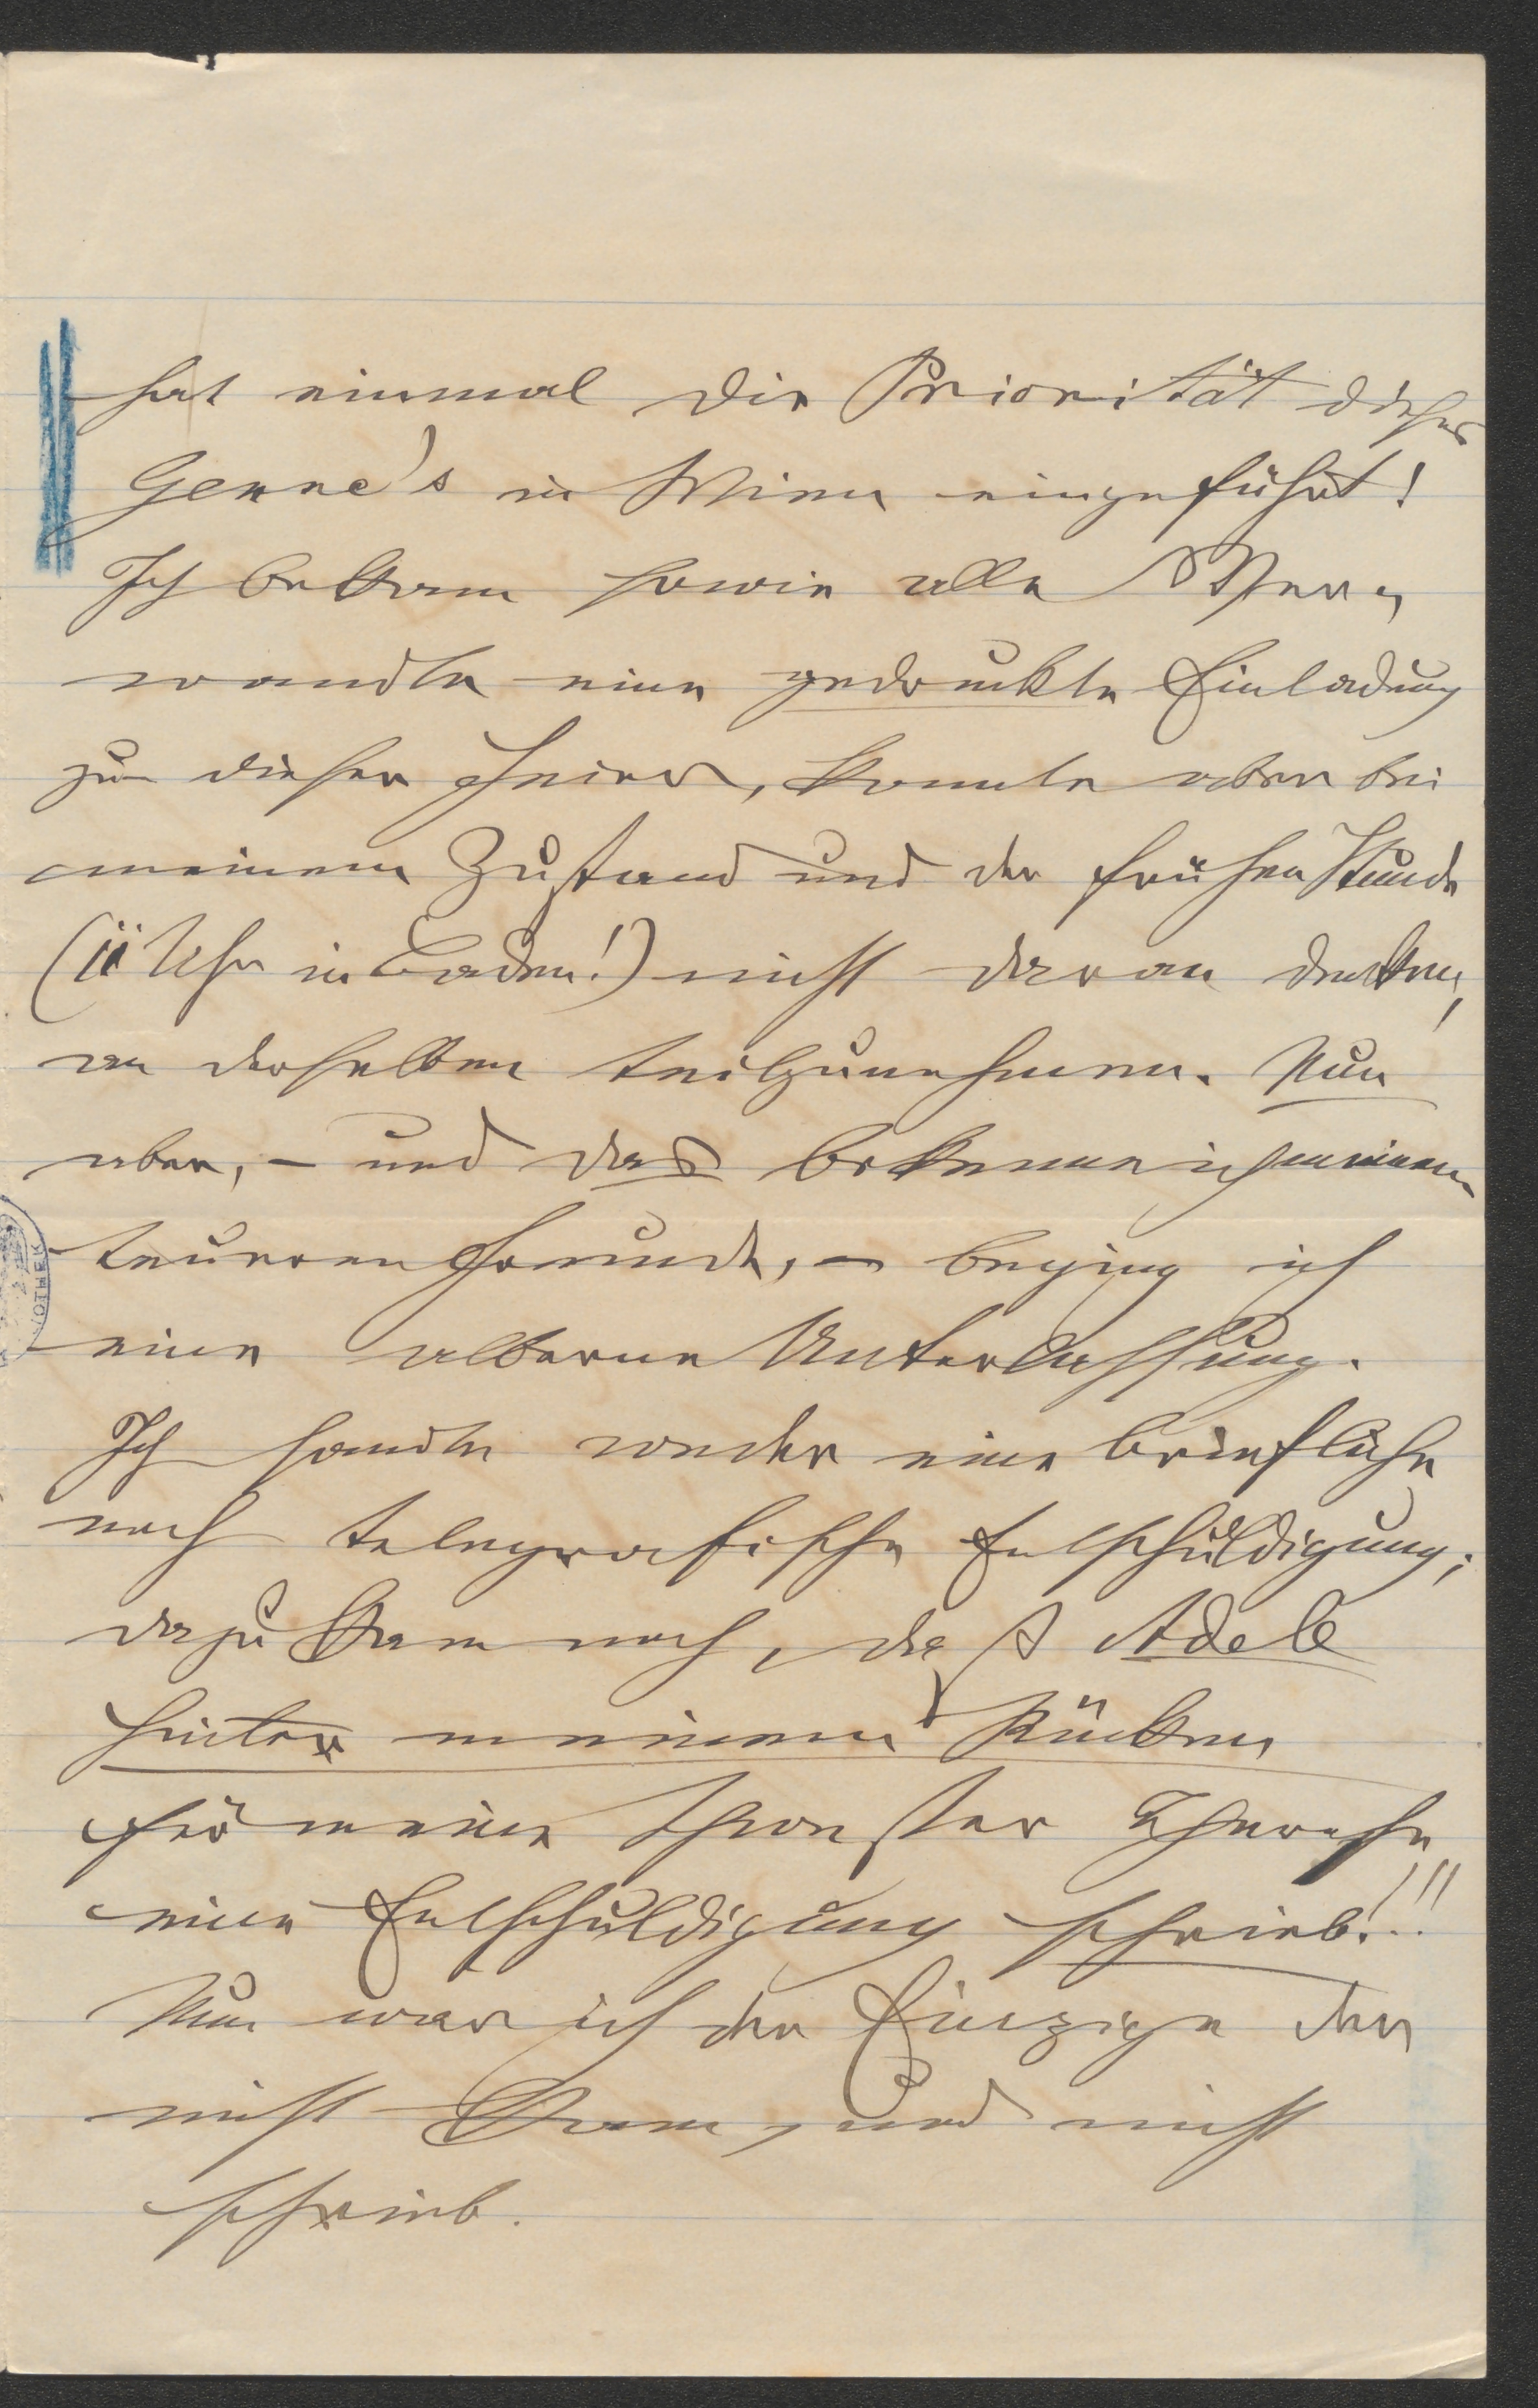 hat einmal die Priorität dieses
Genre's in Wien eingeführt!
Ich bekam sowie alle Ver=
wandte eine gedruckte Einladung
zu dieser Feier, konnte aber bei
meinem Zustand und der frühen Stunde
(11 Uhr in Baden!) nicht daran denken,
an derselben teilzunehmen. Nun
aber, – und das bekenne ich meinem
teureren Freunde, – beging ich
eine alberne Unterlassung.
Ich sandte weder eine briefliche
noch telegrafische Entschuldigung;
dazu kam noch, daß Adele
hinter meinem Rücken
für meine Schwester Therese
eine Entschuldigung schrieb!!!
Nun war ich der Einzige der
nicht kam, und nicht
schrieb.